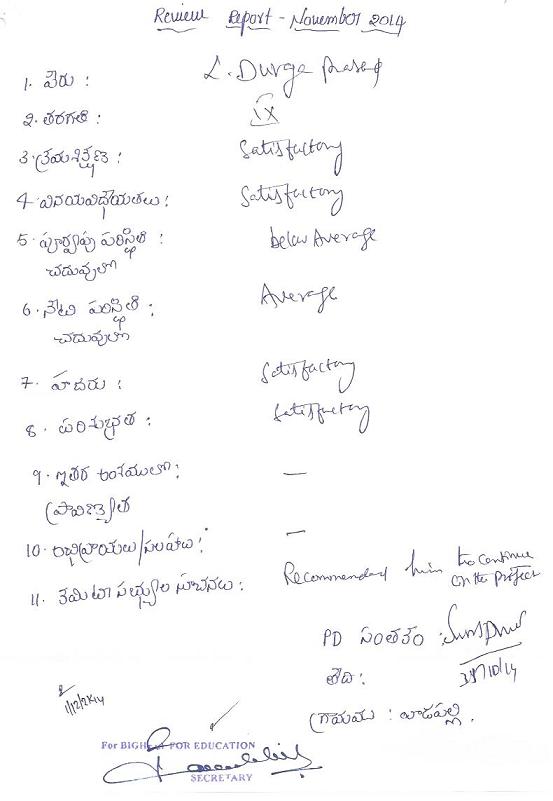 Review Report - November 2014
1. పేరు : L. Durga Prasad
2. తరగతి : IX
3. క్రమశిక్షణ : Satisfactory
4. వినయవిధేయతలు : Satisfactory
5. పూర్వపు పరిస్థితి : below Average
చదువులో
6. నేటి పరిస్థితి : Average
చదువులో
7. హాజరు : Satisfactory
8. పరిశుభ్రత : Satisfactory
9. ఇతర అంశములలో : —
ప్రావీణ్యత
10. అభిప్రాయలు/సలహాలు : —
11. కమిటీ సభ్యుల సూచనలు : Recommended him to continue
on the project
PD సంతకం :
తేది : /10/14
గ్రామము : వాడపల్లి.
1/12/2K14
For BIGHELP FOR EDUCATION
SECRETARY